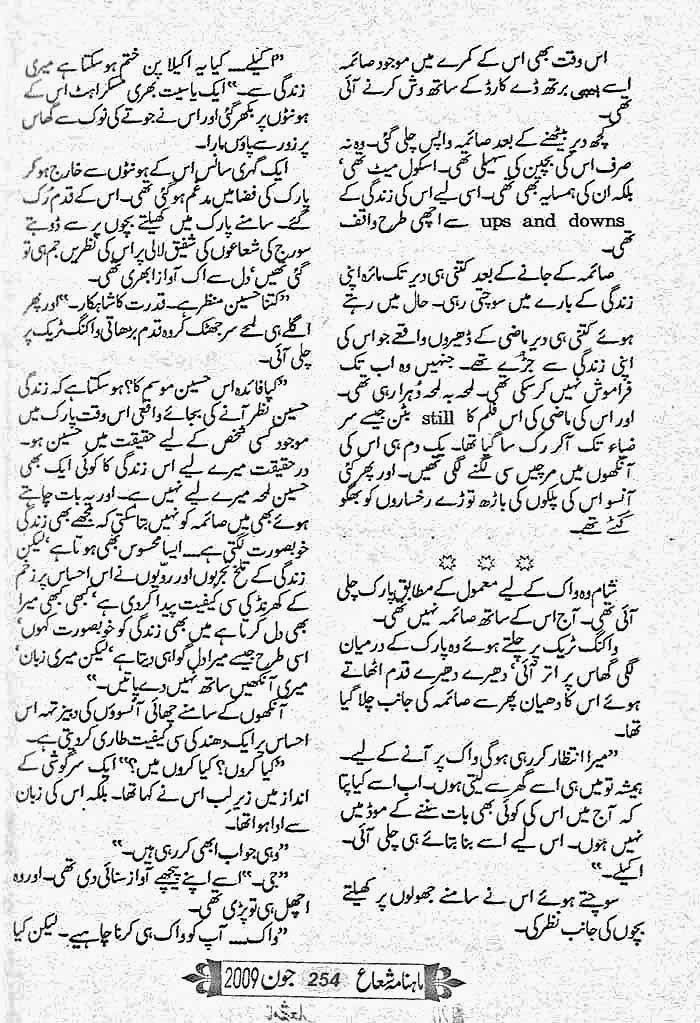 اس وقت بھی اس کے کمرے میں موجود صائمہ
اسے ہیپی برتھ ڈے کارڈ کے ساتھ وش کرنے آئی
تھی۔
کچھ دیر بیٹھنے کے بعد صائمہ واپس چلی گئی۔ وہ نہ
صرف اس کی بچپن کی سہیلی تھی۔ اسکول میٹ تھی‘
بلکہ ان کی ہمسایہ بھی تھی۔ اسی لیے اس کی زندگی کے
ups and downs سے اچھی طرح واقف
تھی۔
صائمہ کے جانے کے بعد کتنی ہی دیر تک مائرہ اپنی
زندگی کے بارے میں سوچتی رہی۔ حال میں رہتے
ہوئے کتنی ہی دیر ماضی کے ڈھیروں واقعے جو اس کی
اپنی زندگی سے جڑے تھے۔ جنہیں وہ اب تک
فراموش نہیں کر سکی تھی۔ لمحہ بہ لمحہ دُہرا رہی تھی۔
اور اس کی ماضی کی اس فلم کا still بٹن جیسے سر
ضیاء تک آ کر رک سا گیا تھا۔ یک دم ہی اس کی
آنکھوں میں مرچیں سی لگنے لگی تھیں۔ اور پھر کئی
آنسو اس کی پلکوں کی باڑھ توڑے رخساروں کو بھگو
گئے تھے۔
شام وہ واک کے لیے معمول کے مطابق پارک چلی
آئی تھی۔ آج اس کے ساتھ صائمہ نہیں تھی۔
واکنگ ٹریک پر چلتے ہوئے وہ پارک کے درمیان
لگی گھاس پر اتر آئی‘ دھیرے دھیرے قدم اٹھاتے
ہوئے اس کا دھیان پھر سے صائمہ کی جانب چلا گیا
تھا۔
”میرا انتظار کر رہی ہو گی واک پر آنے کے لیے۔
ہمیشہ تو میں ہی اسے گھر سے لیتی ہوں۔ اب اسے کیا پتا
کہ آج میں اس کی کوئی بھی بات سننے کے موڈ میں
نہیں ہوں۔ اس لیے اسے بنا بتائے ہی چلی آئی۔
اکیلے۔“
سوچتے ہوئے اس نے سامنے جھولوں پر کھیلتے
بچوں کی جانب نظر کی۔
”اکیلے۔۔۔ کیا یہ اکیلا پن ختم ہو سکتا ہے میری
زندگی سے۔“ ایک یاسیت بھری مسکراہٹ اس کے
ہونٹوں پر بکھر گئی اور اس نے جوتے کی نوک سے گھاس
پر زور سے پاؤں مارا۔
ایک گہری سانس اس کے ہونٹوں سے خارج ہو کر
پارک کی فضا میں مدغم ہو گئی تھی۔ اس کے قدم رُک
گئے۔ سامنے پارک میں کھیلتے بچوں پر سے ڈوبتے
سورج کی شعاعوں کی شفیق لالی پر اس کی نظریں جم ہی تو
گئی تھیں‘ دل سے اک آواز ابھری تھی۔
”کتنا حسین منظر ہے۔ قدرت کا شاہکار۔“ اور پھر
اگلے ہی لمحے سر جھٹک کر وہ قدم بڑھاتی واکنگ ٹریک پر
چلی آئی۔
”کیا فائدہ اس حسین موسم کا؟ ہو سکتا ہے کہ زندگی
حسین نظر آنے کی بجائے واقعی اس وقت پارک میں
موجود کسی شخص کے لیے حقیقت میں حسین ہو۔
در حقیقت میرے لیے اس زندگی کا کوئی ایک بھی
حسین لمحہ میرے لیے نہیں ہے۔ اور یہ بات چاہتے
ہوئے بھی میں صائمہ کو نہیں بتا سکتی کہ مجھے بھی زندگی
خوبصورت لگتی ہے۔۔۔ ایسا محسوس بھی ہوتا ہے‘ لیکن
زندگی کے تلخ تجربوں اور رویوں نے اس احساس پر زخم
کے کھرنڈ کی سی کیفیت پیدا کر دی ہے‘ کبھی کبھی میرا
بھی دل کرتا ہے میں بھی زندگی کو خوبصورت کہوں‘
اسی طرح جیسے میرا دل گواہی دیتا ہے‘ لیکن میری زبان‘
میری آنکھیں ساتھ نہیں دے پاتیں۔“
آنکھوں کے سامنے چھائی آنسوؤں کی دبیز تہہ اس
احساس پر ایک دھند کی سی کیفیت طاری کر دیتی ہے۔
”کیا کروں؟ کیا کروں میں؟“ ایک سرگوشی کے
انداز میں زیر لب اس نے کہا تھا۔ بلکہ اس کی زبان
سے ادا ہوا تھا۔
”وہی جو اب ابھی کر رہی ہیں۔“
”جی۔“ اسے اپنے پیچھے آواز سنائی دی تھی۔ اور وہ
اچھل ہی تو پڑی تھی۔
”واک۔۔۔ آپ کو واک ہی کرنا چاہیے۔ لیکن کیا
ماہنامہ شعاع 254 جون 2009